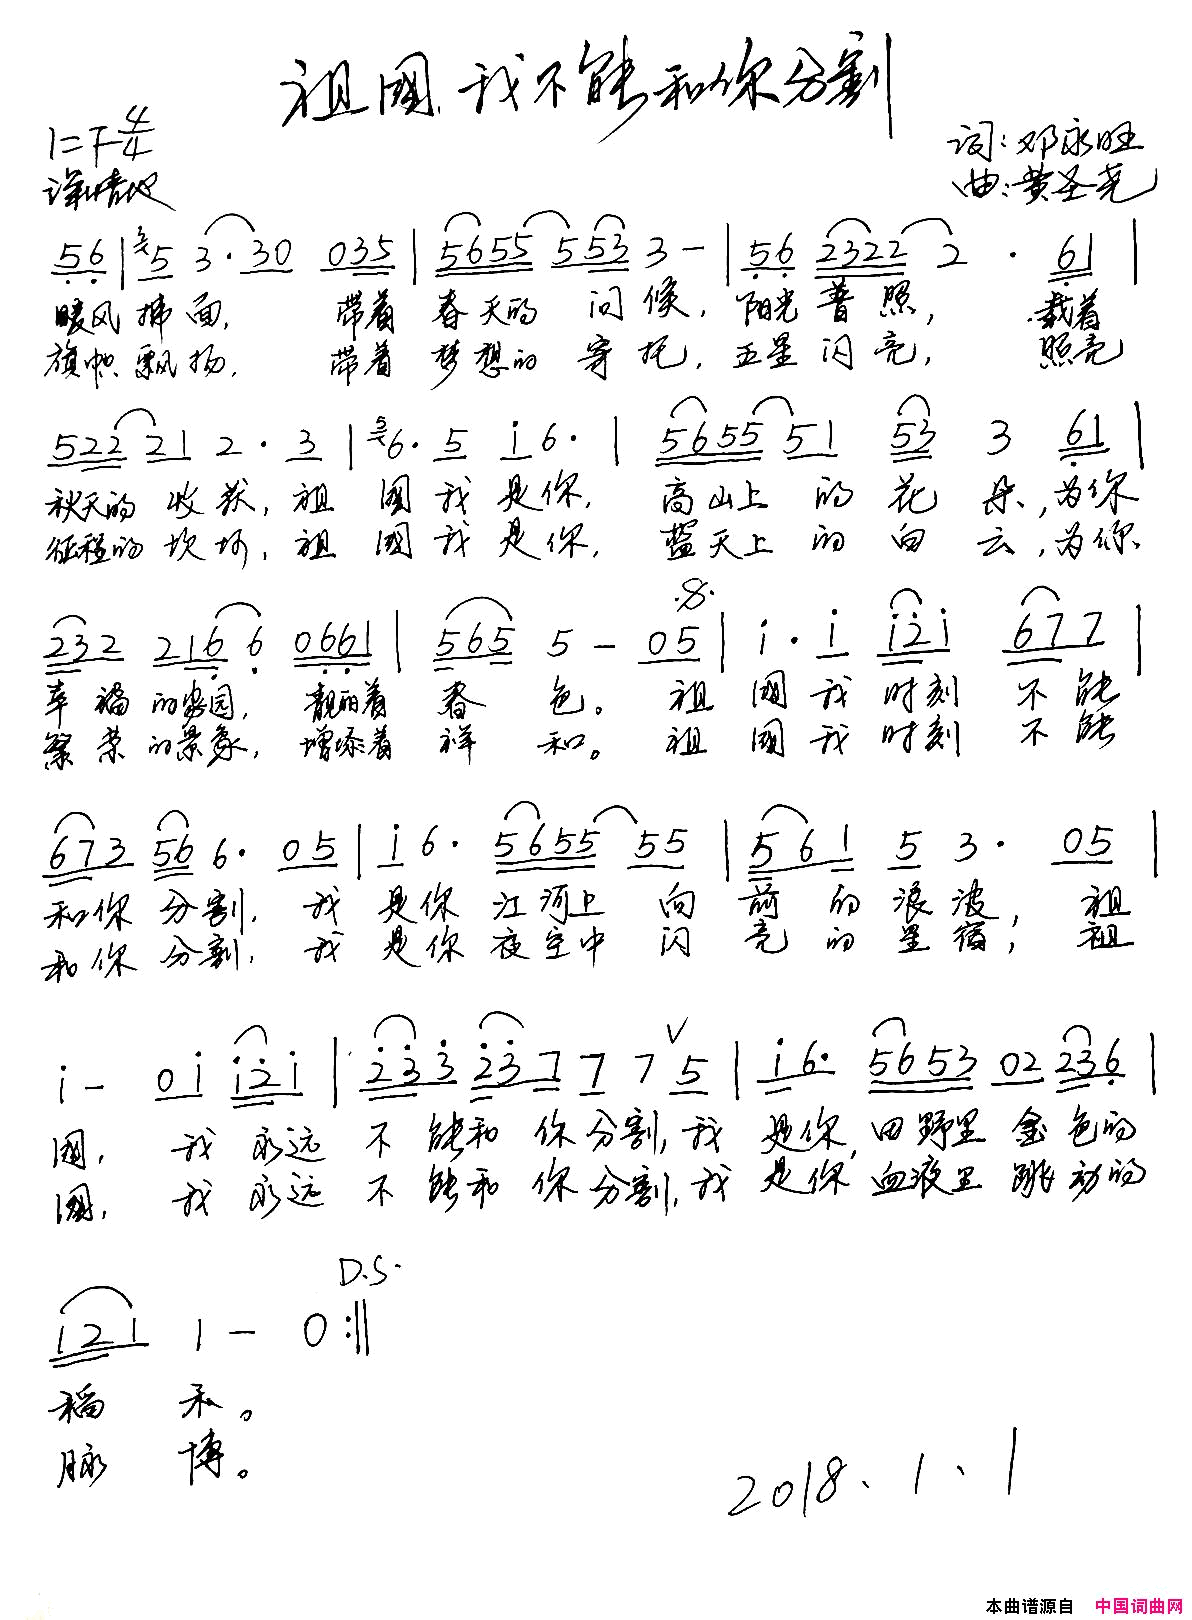 祖國,我不能和你分割
1=F 4/4
词:邓永旺
深情地
曲:黄圣尧
56 | 5 3·30 035 | 5655 553 3 - | 56 2322 2 · 61 |
暖风拂面, 带着 春天的 问候, 阳光普照, 载着
旗帜飘扬, 带着 梦想的 寄托, 五星闪亮, 照亮
522 21 2· 3 | 6· 5 i 6· | 5655 51 53 3 61 |
秋天的 收获, 祖 國我是你, 高山上 的花 朵, 为你
征程的 坎坷, 祖 國我是你, 蓝天上 的白 云, 为你
232 216 6 0661 | 565 5 - 05 | i· i i2i 677 |
幸福的家园, 靓丽着 春 色。 祖 國我时刻 不能
繁荣的景象, 增添着 祥 和。 祖 國我时刻 不能
673 56 6· 05 | i 6· 5655 55 | 561 5 3· 05 |
和你 分割, 我 是你 江河上 向 前 的浪波, 祖
和你 分割, 我 是你 夜空中 闪 亮 的星宿, 祖
i - 0i i2i | 233 23 7 7 7 ∨ 5 | i 6· 5653 02 236 |
國, 我永远 不 能和 你分割, 我 是你, 田野里 金色的
國, 我永远 不 能和 你分割, 我 是你, 血液里 跳动的
D.S.
i21 1 - 0 :||
稻 禾。
脉 博。
2018、1、1
本曲谱源自 中国词曲网